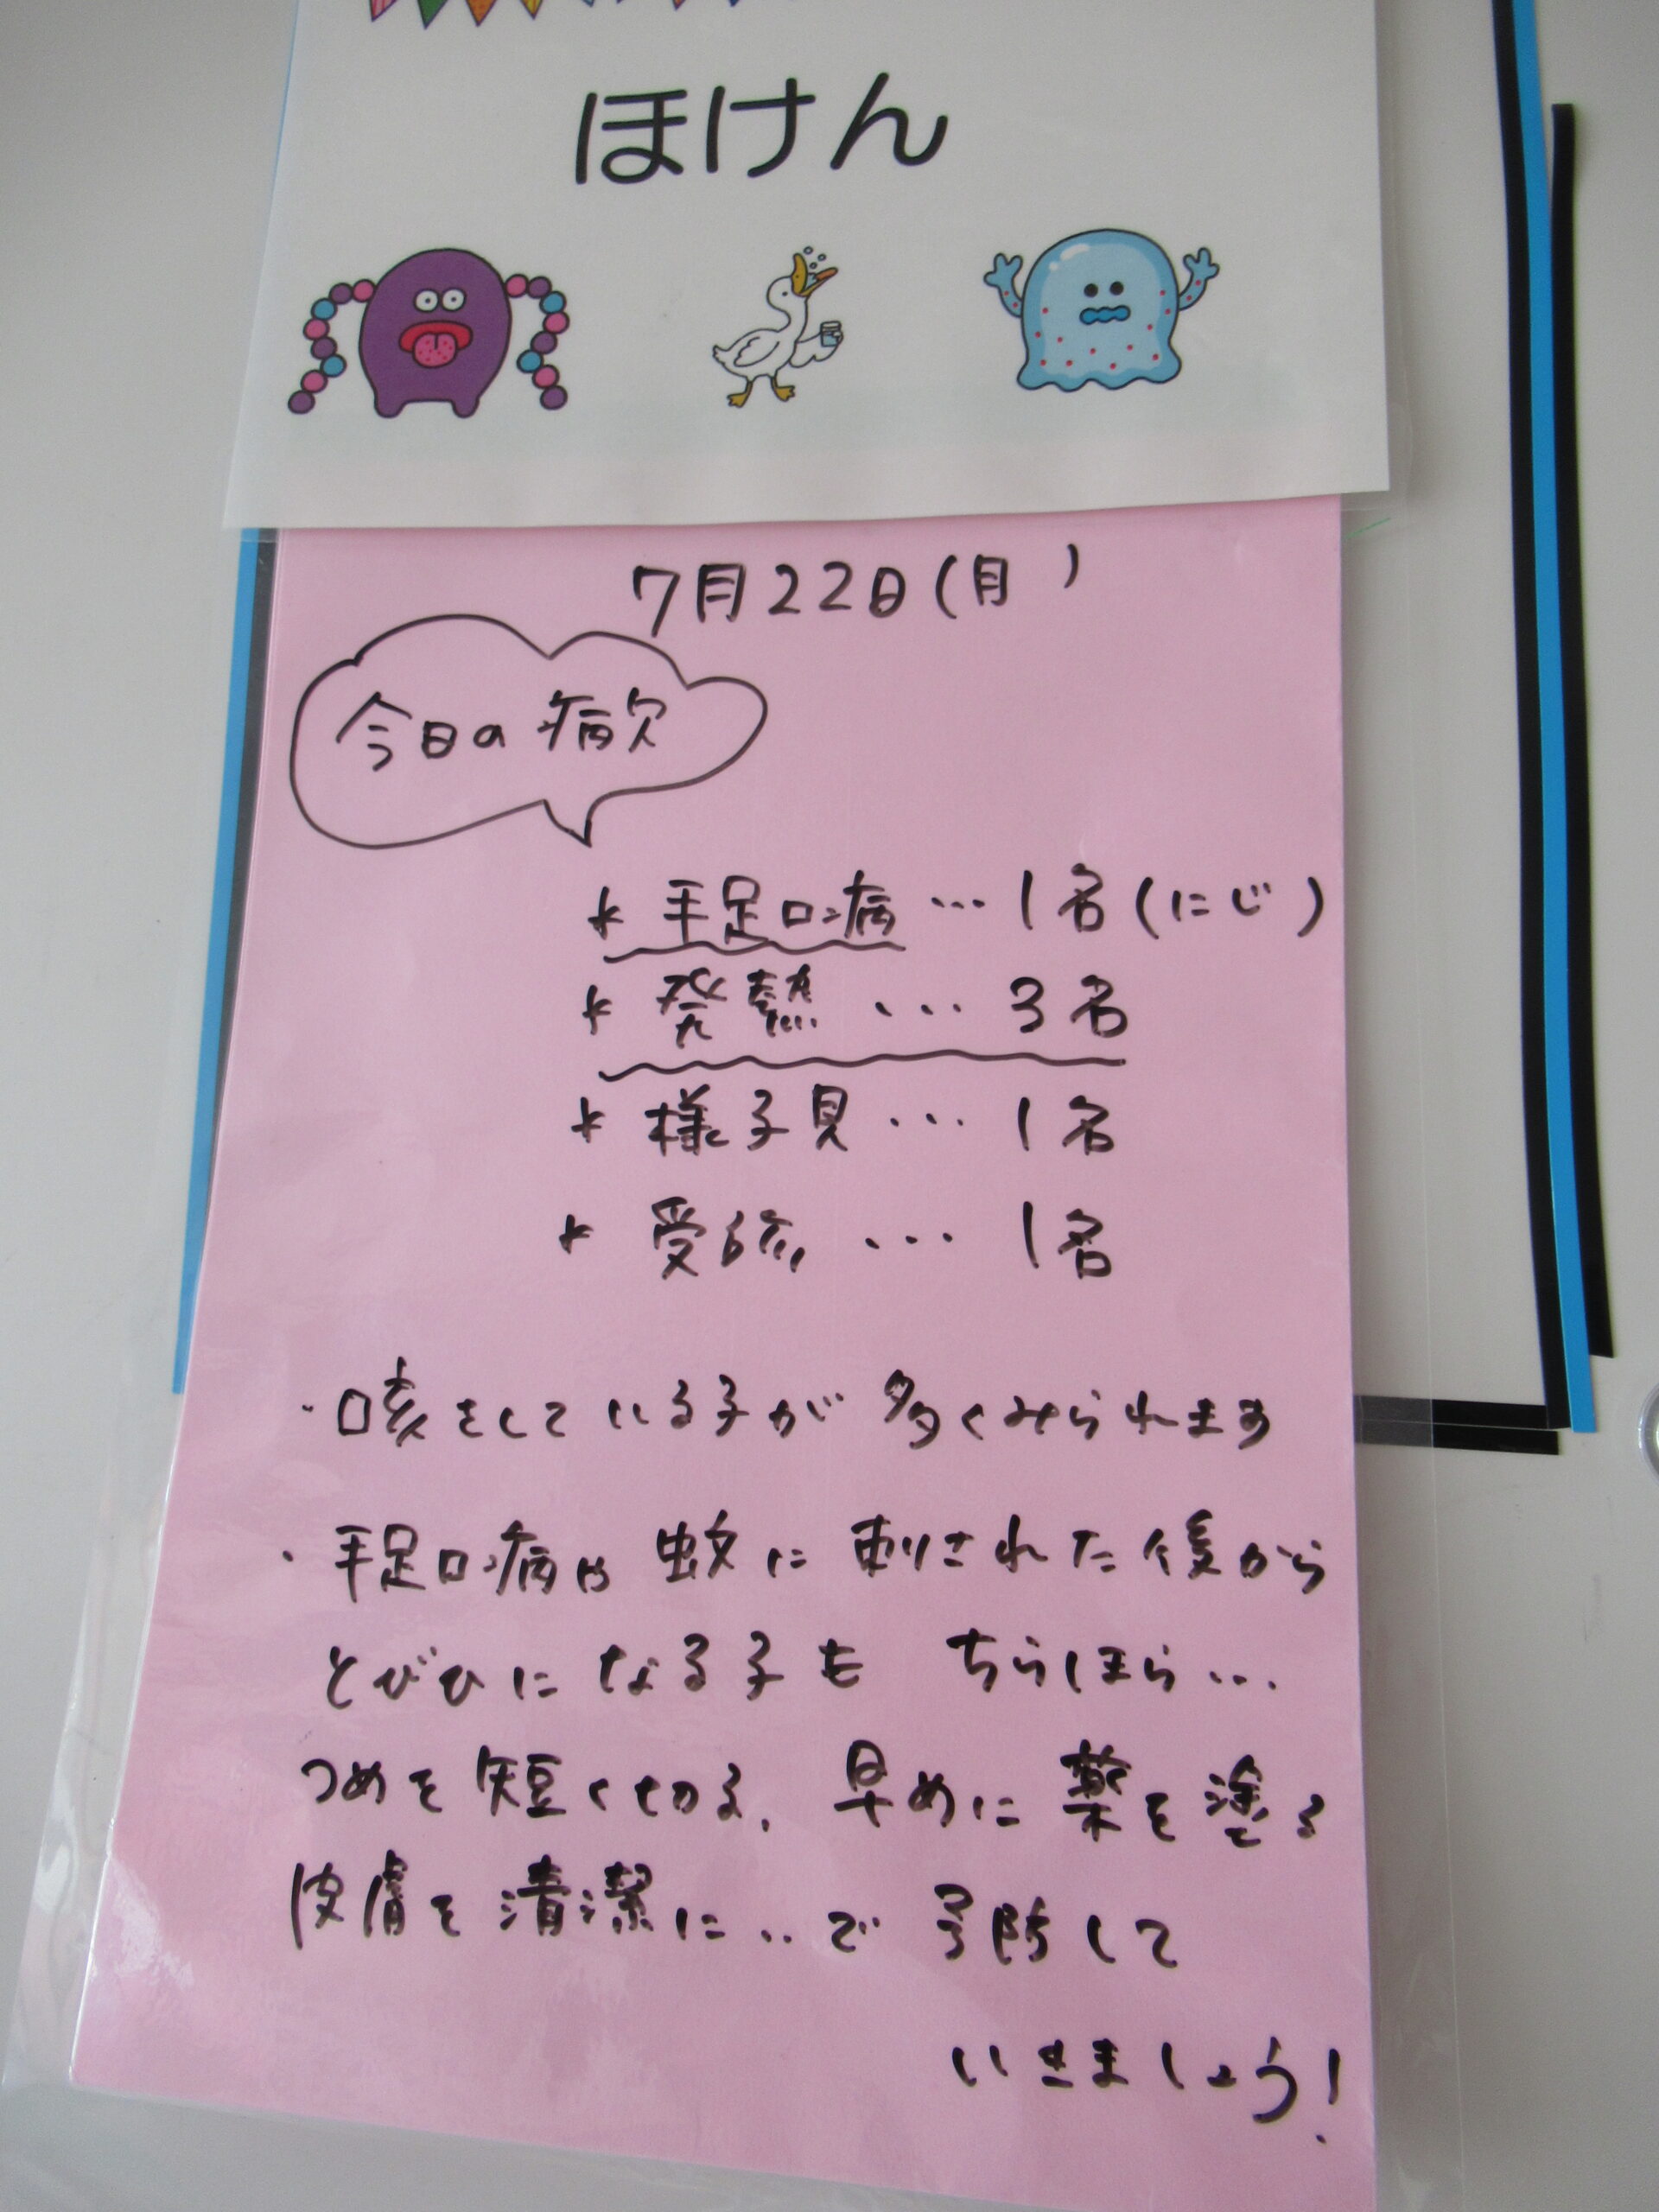 ほけん
7月22日(月 )
今日の病欠
* 手足口病 … 1名(にじ)
* 発熱 … 3名
* 様子見 … 1名
* 受診 … 1名
・咳をしている子が 多くみられます
・手足口病や 蚊に 刺された後から
とびひに なる子も ちらほら…
つめを短く切る、早めに薬を塗る
皮膚を清潔に‥で 予防して
いきましょう!